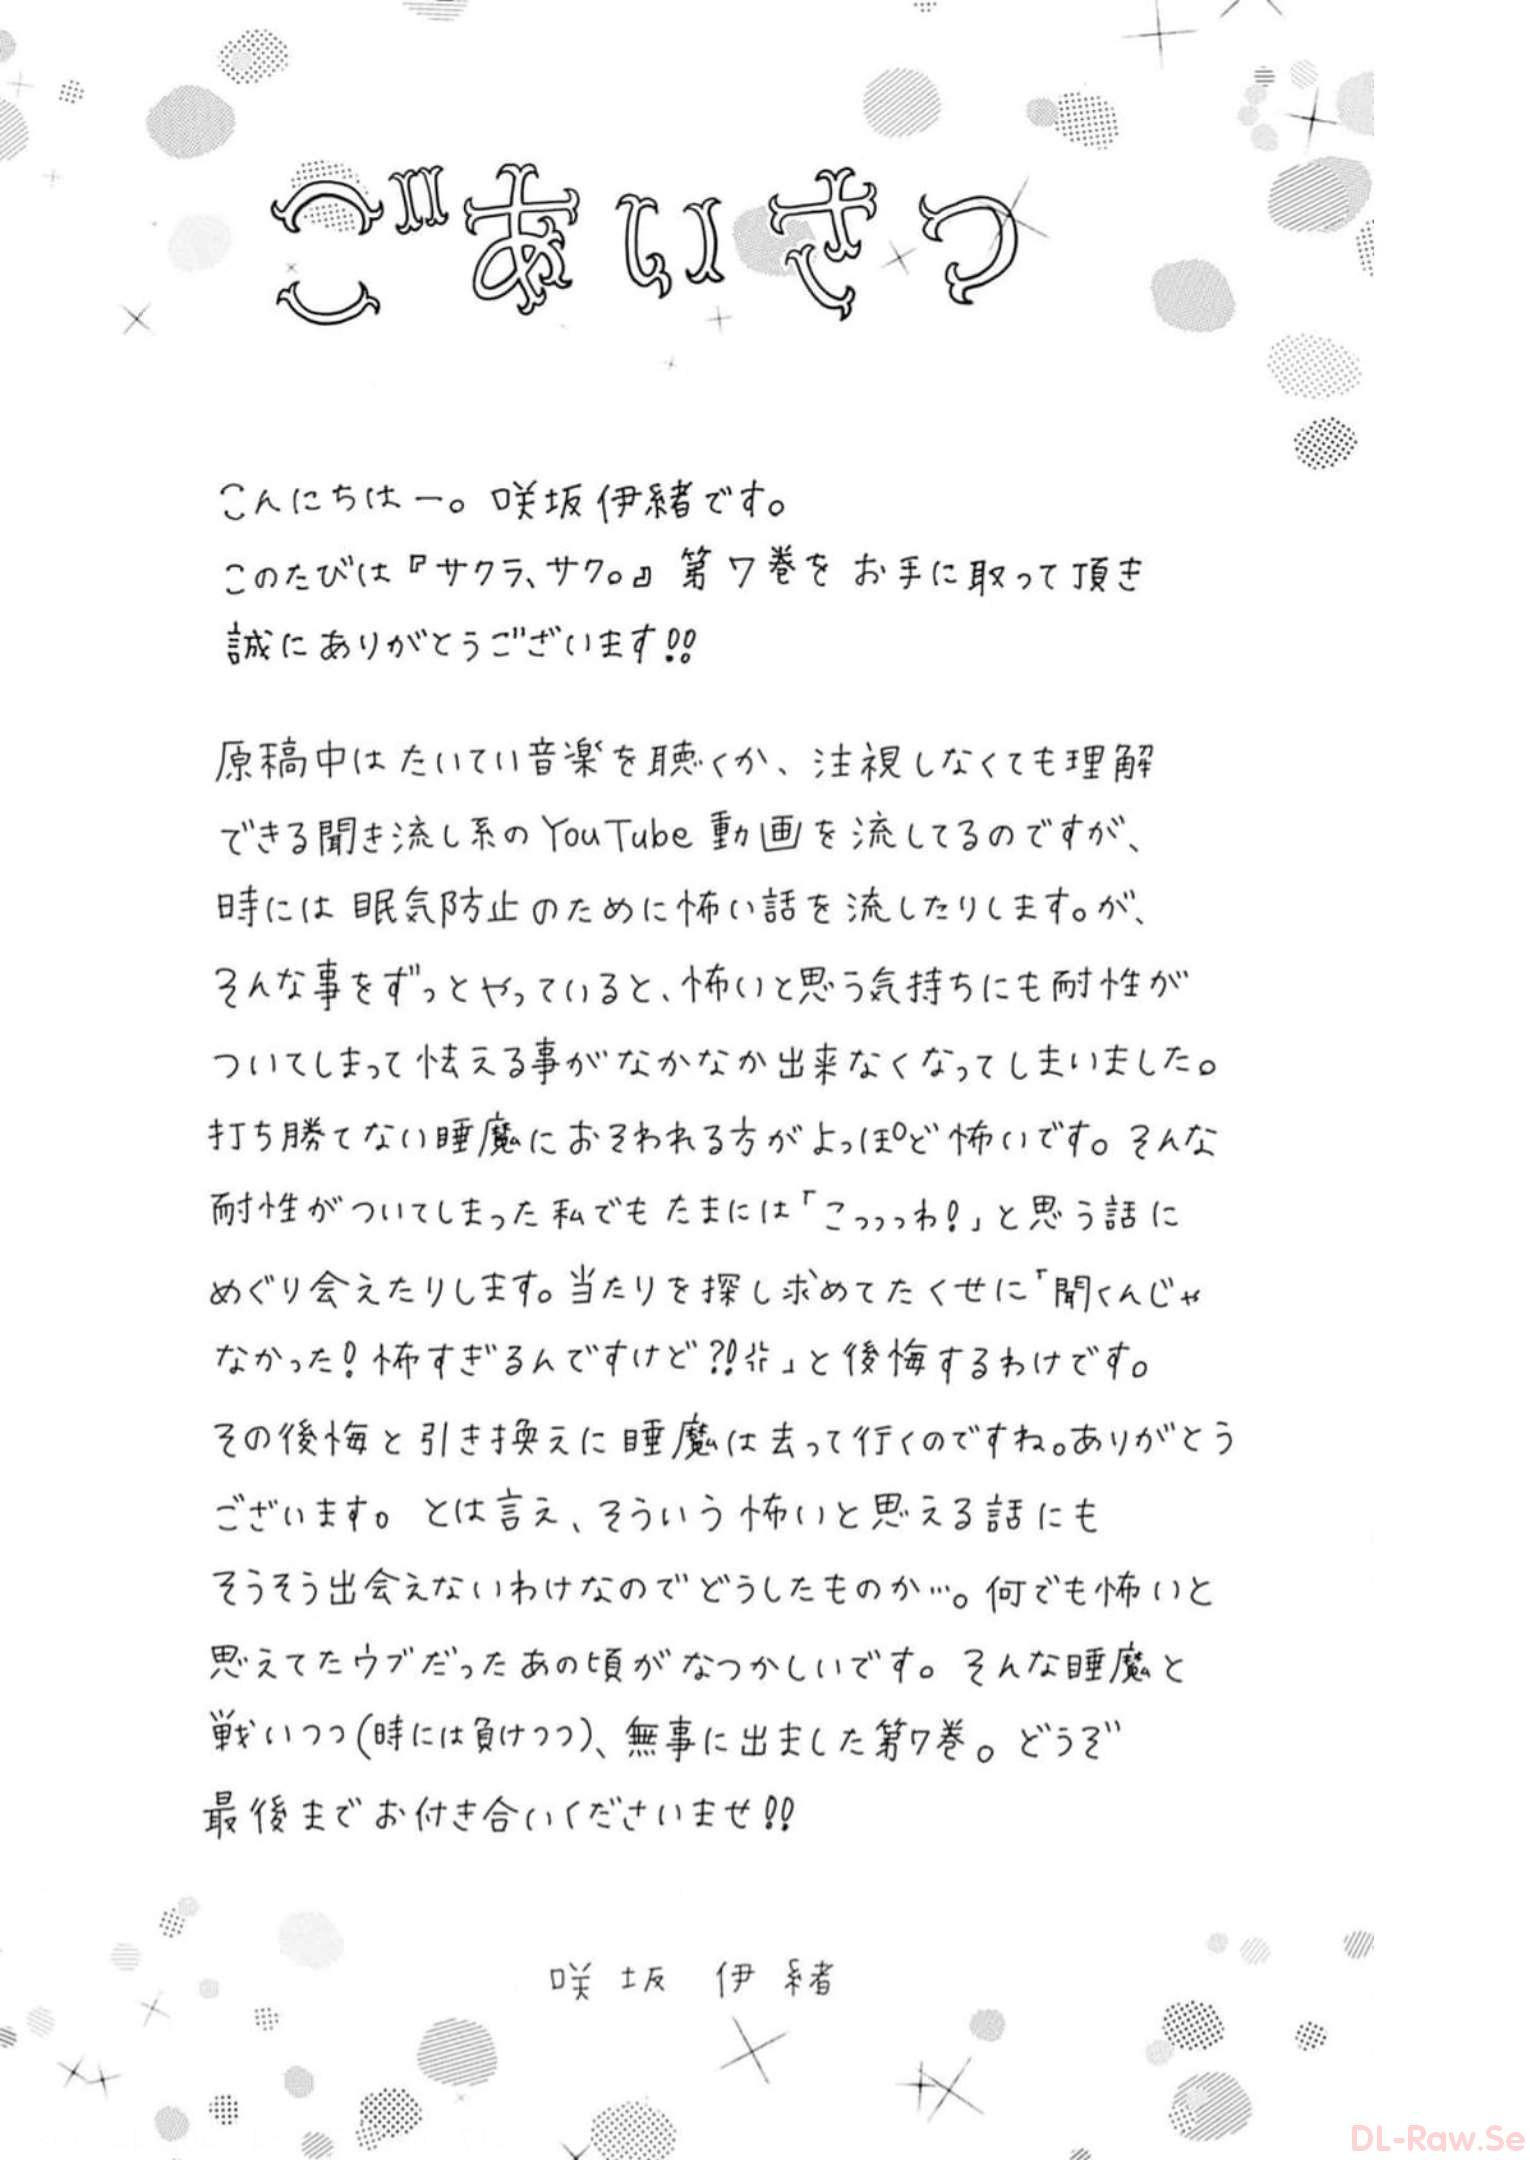 ごあいさつ
こんにちはー。咲坂伊緒です。
このたびは『サクラ、サク。』第7巻をお手に取って頂き
誠にありがとうございます!!
原稿中はたいてい音楽を聴くか、注視しなくても理解
できる聞き流し系のYouTube動画を流してるのですが、
時には眠気防止のために怖い話を流したりします。が、
そんな事をずっとやっていると、怖いと思う気持ちにも耐性が
ついてしまって怯える事がなかなか出来なくなってしまいました。
打ち勝てない睡魔におそわれる方がよっぽど怖いです。そんな
耐性がついてしまった私でもたまには「こっっっわ!」と思う話に
めぐり会えたりします。当たりを探し求めてたくせに「聞くんじゃ
なかった!怖すぎるんですけど?!」と後悔するわけです。
その後悔と引き換えに睡魔は去って行くのですね。ありがとう
ございます。とは言え、そういう怖いと思える話にも
そうそう出会えないわけなのでどうしたものか…。何でも怖いと
思えてたウブだったあの頃がなつかしいです。そんな睡魔と
戦いつつ(時には負けつつ)、無事に出ました第7巻。どうぞ
最後までお付き合いくださいませ!!
咲坂 伊緒
DL-Raw.Se